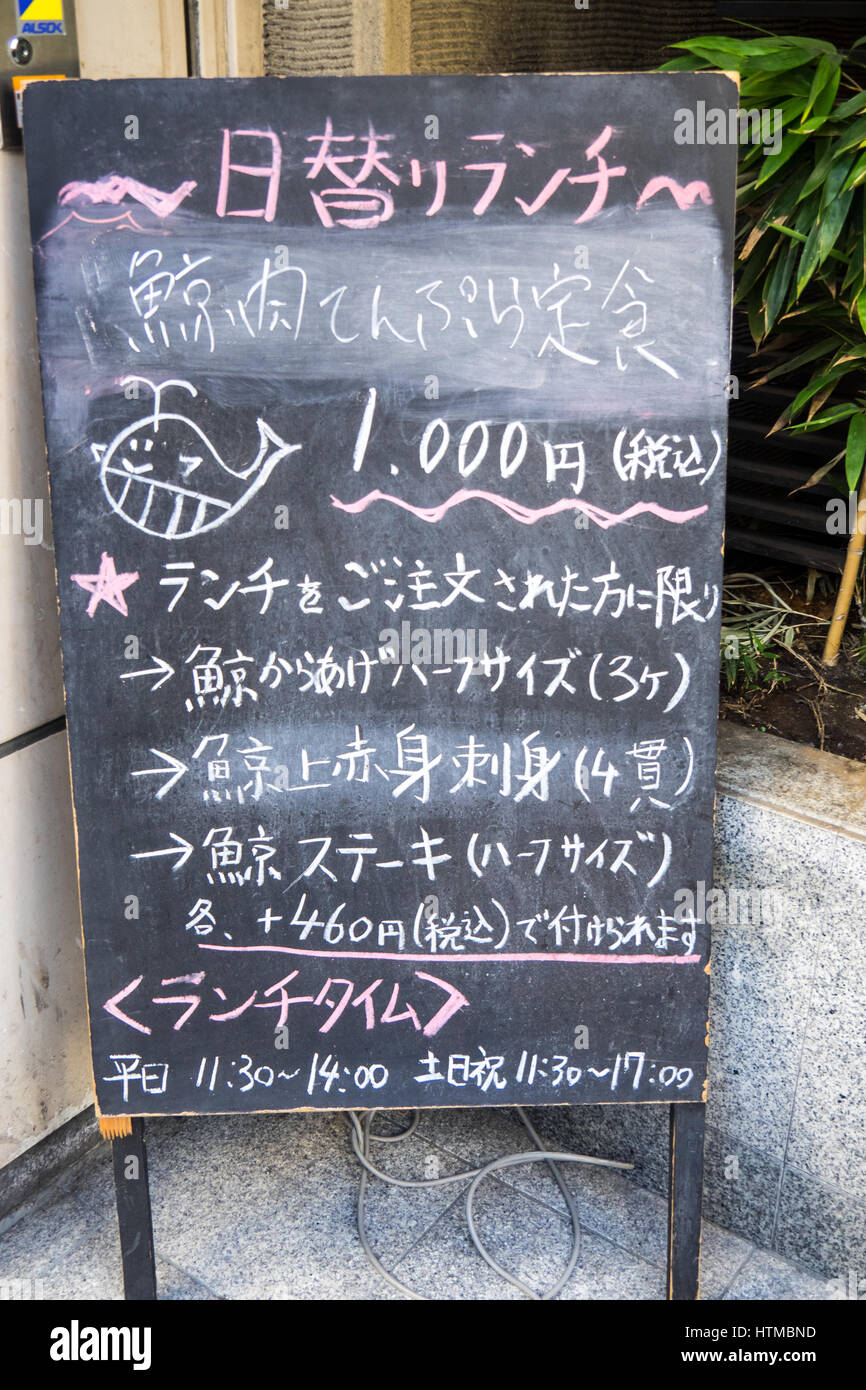 ALSOK
～日替りランチ～
鯨肉てんぷら定食
1.000円(税込)
★ランチをご注文された方に限り
→鯨からあげハーフサイズ(3ヶ)
→鯨上赤身刺身(4貫)
→鯨ステーキ(ハーフサイズ)
各、+460円(税込)で付けられます
<ランチタイム>
平日 11:30～14:00 土日祝11:30～17:00
alamy
Image ID: HTMBND
www.alamy.com